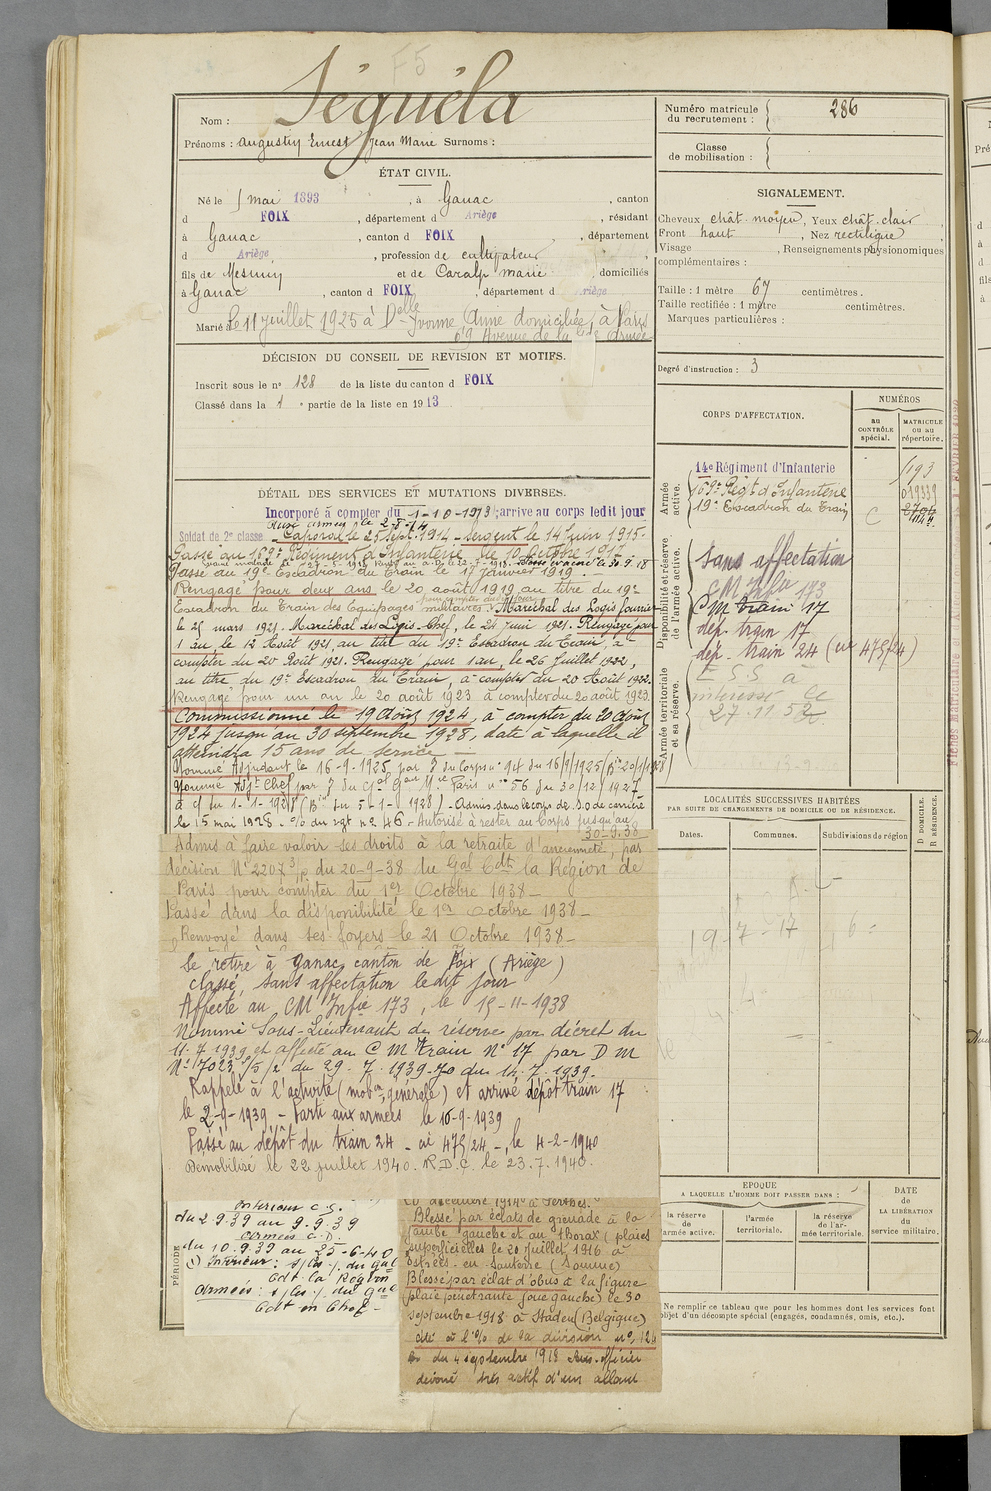 F5
Nom : Séguéla
Prénoms : Augustin Ernest Jean Marie Surnoms :
ÉTAT CIVIL.
Né le 5 mai 1893, à Ganac, canton
d FOIX, département d Ariège, résidant
à Ganac, canton d FOIX, département
d Ariège, profession de cultivateur,
fils de Mesmin et de Caralp marie, domiciliés
à Ganac, canton d FOIX, département d Ariège
Marié à le 11 juillet 1925 à Delle Yvonne Anne domiciliée, à Paris
69 Avenue de la Gde Armée
DÉCISION DU CONSEIL DE REVISION ET MOTIFS.
Inscrit sous le no 128 de la liste du canton d FOIX
Classé dans la 1e partie de la liste en 1913
DÉTAIL DES SERVICES ET MUTATIONS DIVERSES.
Incorporé à compter du 1-10-1913; arrive au corps ledit jour
aux armées le 2-8-14
Soldat de 2e classe - Caporal le 25 Sept. 1914 - Sergent le 14 juin 1915.
Passé au 169e Régiment d'Infanterie le 10 Octobre 1917
Passé du 19e Escadron du Train le 17 janvier 1919.
Rengagé pour deux ans le 20 août 1919 au titre du 19e
Escadron du Train des Equipages militaires. Maréchal des Logis fourrier
le 25 mars 1921. Maréchal des Logis-Chef, le 21 mai 1921. Rengagé pour
1 an le 12 Août 1921, au titre du 19e Escadron du Train, à
compter du 20 Août 1921. Rengagé pour 1 an, le 26 Juillet 1922,
au titre du 19e Escadron du Train, à compter du 20 Août 1922.
Rengagé pour un an le 20 août 1923 à compter du 20 août 1923.
Commissionné le 19 Août 1924, à compter du 20 Août
1924 jusqu'au 30 septembre 1928, date à laquelle il
atteindra 15 ans de service —
Nommé Adjudant le 16-9-1925 par J du Corps no 94 du 16/9/1925
Nommé Adjt Chef par J du Gal Gou Mre Paris no 56 du 30/12/1927
à c/ du 1-1-1928 (Bin du 5-1-1928) - Admis dans le corps de S.O de carrière
le 15 mai 1928 - no 46 - Autorisé à rester au Corps jusqu'au
30-9-38
Admis à faire valoir ses droits à la retraite d'ancienneté, par
décision No 2207 3/P du 20-9-38 du Gal Cdt la Région de
Paris pour compter du 1er Octobre 1938 -
Passé dans la disponibilité le 1er Octobre 1938 -
Renvoyé dans ses foyers le 21 Octobre 1938 -
Se retire à Ganac canton de Foix (Ariège)
classé, sans affectation ledit jour
Affecté au CM Infie 173, le 15-11-1938
Nommé Sous-Lieutenant de réserve par décret du
11.7.1939 et affecté au C M train No 17 par D m
No 7023 5/2 du 29.7.1939.
Rappelé à l'activité (mobon générale) et arrivé dépôt train 17
le 2-9-1939 - Parti aux armées le 10-9-1939
Passé au dépôt du train 24 - ue 475/24 -, le 4-2-1940
Démobilisé le 22 juillet 1940. R.D.C. le 23.7.1940.
PÉRIODE
Intérieur C.S.
du 2.9.39 au 9.9.39
Armées C.D.
du 10.9.39 au 25-6-40
Intérieur : du Gal
Cdt la Région
Armées : du Gal
Cdt en Chef -
20 décembre 1914 à Perthes.
Blessé par éclats de grenade à la
jambe gauche et au thorax (plaies
superficielles le 20 juillet 1916 à
Estrées - en Santerre (Somme)
Blessé par éclat d'obus à la figure
plaie pénétrante joue gauche) le 30
septembre 1918 à Staden (Belgique)
cité à l'% de la division no 124
du 4 septembre 1918 sous-officier
dévoué très actif d'un allant
Numéro matricule du recrutement : 286
Classe de mobilisation :
SIGNALEMENT.
Cheveux chât. moyen, Yeux chât. clair
Front haut, Nez rectiligne
Visage, Renseignements physionomiques
complémentaires :
Taille : 1 mètre 67 centimètres.
Taille rectifiée : 1 mètre centimètres.
Marques particulières :
Degré d'instruction : 3
CORPS D'AFFECTATION.
NUMÉROS
au CONTRÔLE spécial.
MATRICULE ou au répertoire.
Armée active.
14e Régiment d'Infanterie
169e Régt d'Infanterie
19e Escadron du Train
C
Disponibilité et réserve de l'armée active.
Sans affectation
CM Infie 173
CM train 17
dép. train 17
dép. train 24 (ue 475/24)
Armée territoriale et sa réserve.
E S S à
intéressé le
27.11.52
LOCALITÉS SUCCESSIVES HABITÉES
PAR SUITE DE CHANGEMENTS DE DOMICILE OU DE RÉSIDENCE.
Dates.
Communes.
Subdivisions de région
D DOMICILE.
R RÉSIDENCE.
EPOQUE
A LAQUELLE L'HOMME DOIT PASSER DANS :
la réserve de l'armée active.
l'armée territoriale.
la réserve de l'armée territoriale.
DATE DE LA LIBÉRATION du service militaire.
Ne remplir ce tableau que pour les hommes dont les services font
l'objet d'un décompte spécial (engagés, condamnés, omis, etc.).